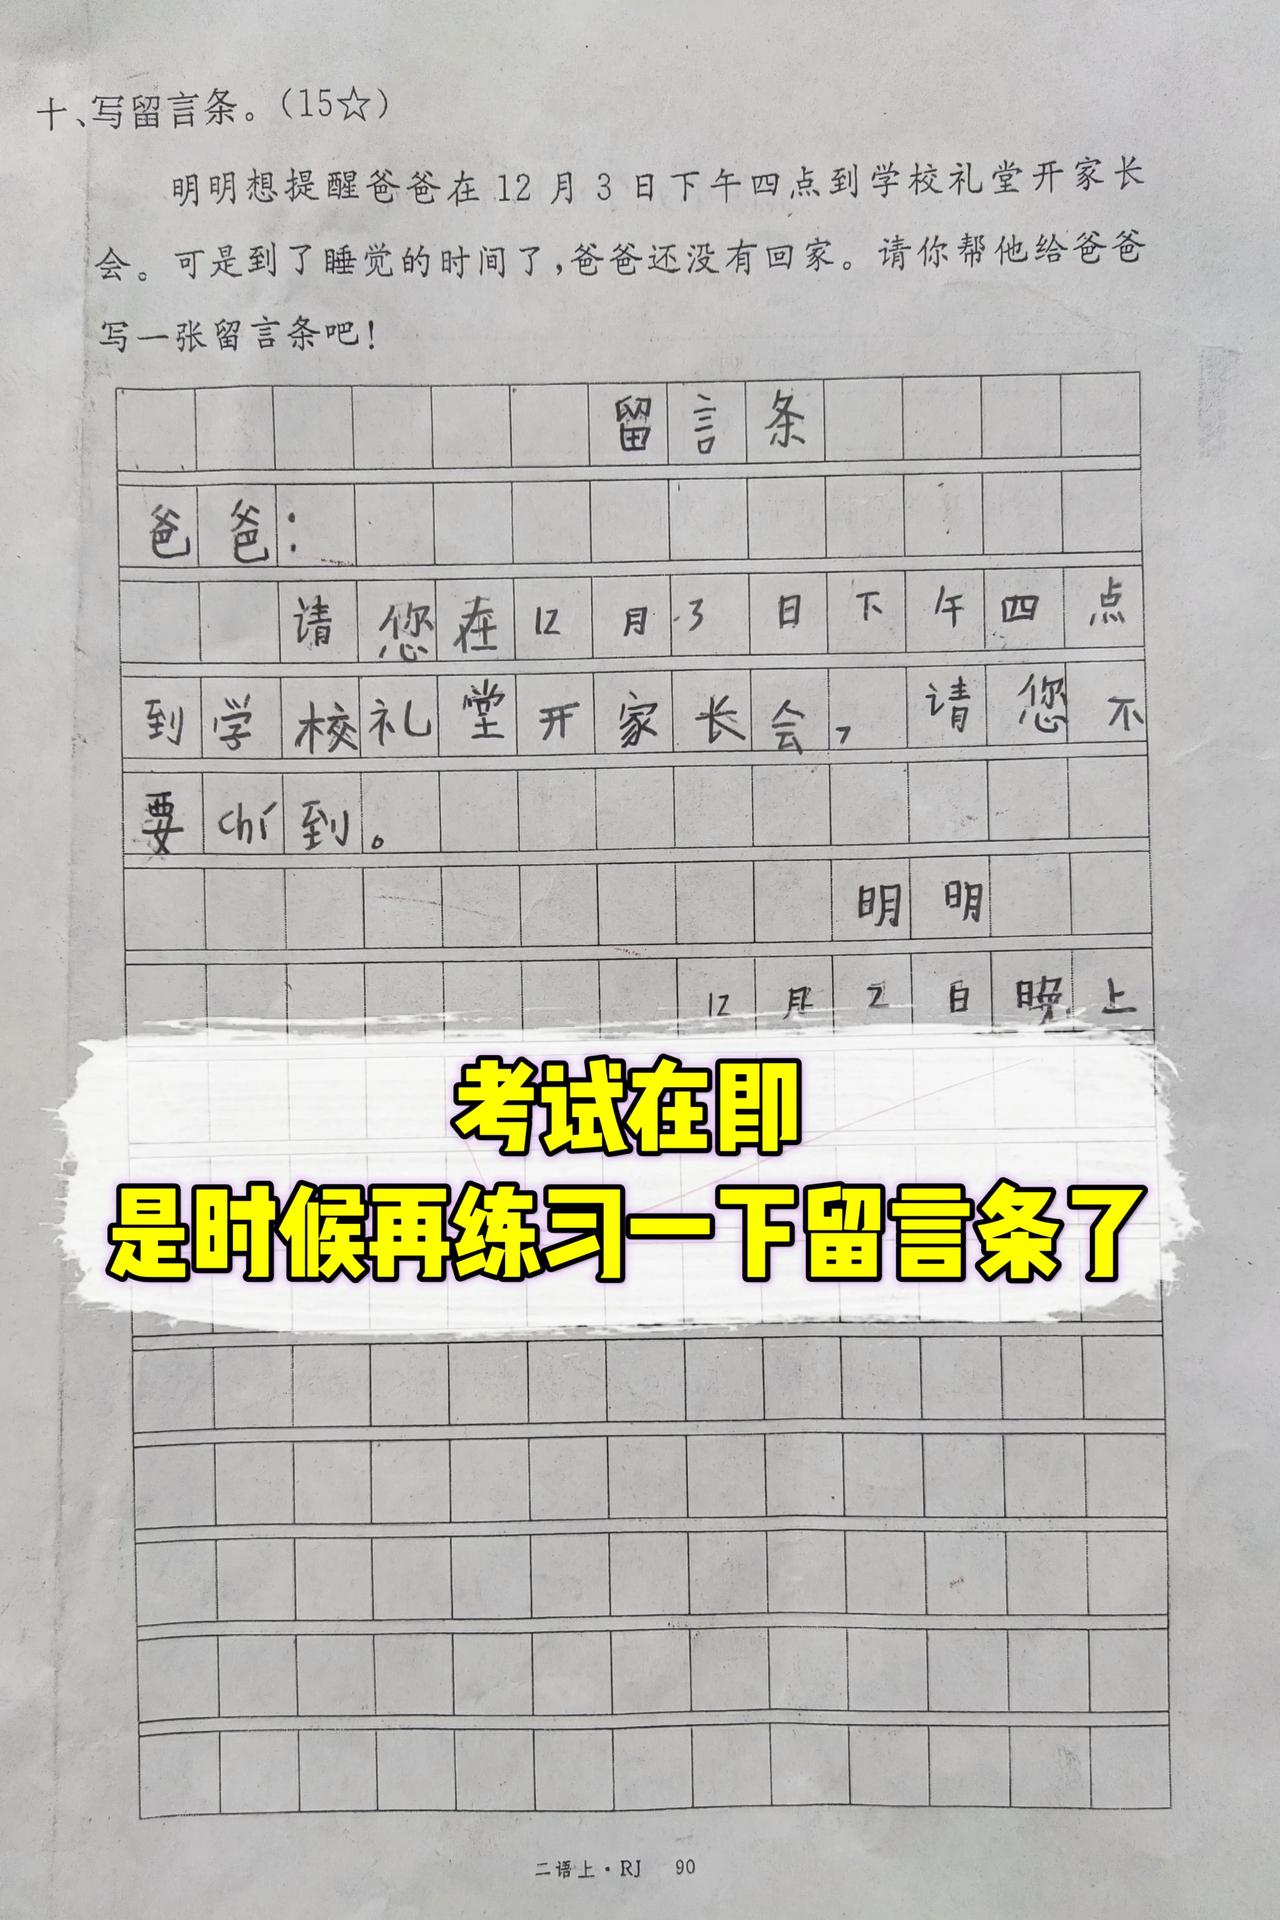 十、写留言条。(15☆)
明明想提醒爸爸在12月3日下午四点到学校礼堂开家长
会。可是到了睡觉的时间了,爸爸还没有回家。请你帮他给爸爸
写一张留言条吧!
留言条
爸爸:
请您在12月3日下午四点
到学校礼堂开家长会,请您不
要chí到。
明明
12月2日晚上
考试在即
是时候再练习一下留言条了
二语上·RJ 90